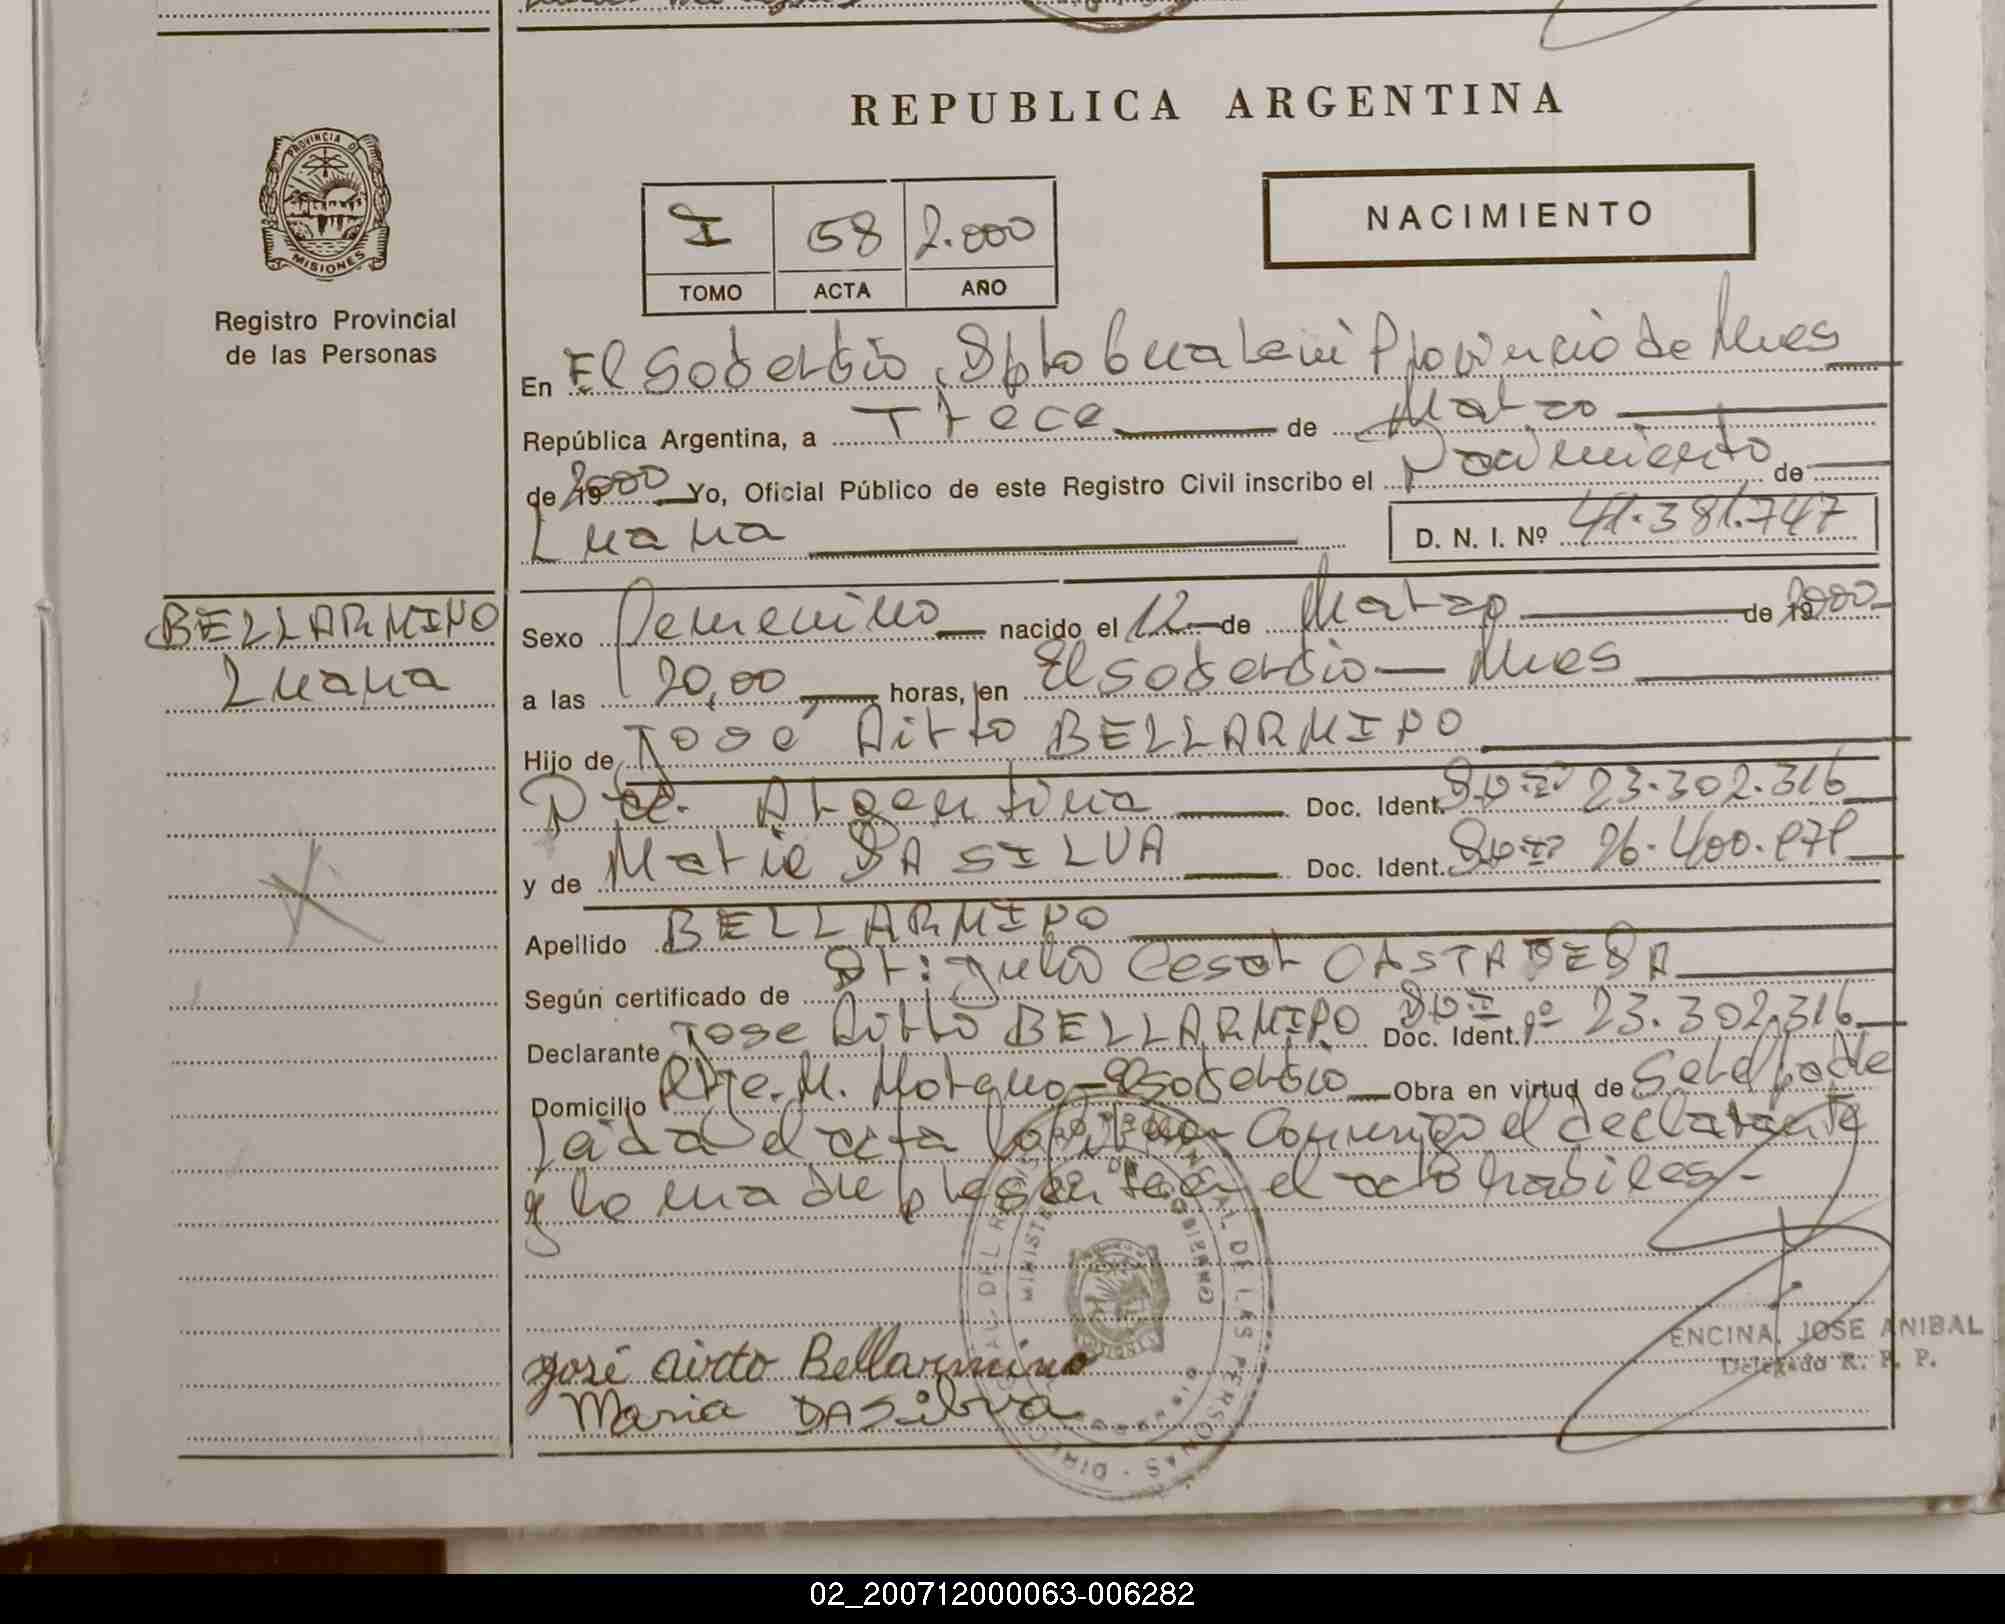 REPUBLICA ARGENTINA
PROVINCIA DE
MISIONES
Registro Provincial
de las Personas
I 58 2.000
TOMO ACTA AÑO
NACIMIENTO
En El Soberbio, Dpto Guarani Provincia de Mnes
República Argentina, a Trece de Marzo
de 19 2000 Yo, Oficial Público de este Registro Civil inscribo el Nacimiento de
Luana D. N. I. Nº 41.381.747
BELLARMINO
Luana
Sexo Femenino nacido el 12 de Marzo de 19 2000
a las 20,00 horas, en El Soberbio - Mnes
Hijo de José Airto BELLARMINO
Nac. Argentina Doc. Ident. DNI Nº 23.302.316
y de Maria DA SILVA Doc. Ident. DNI Nº 26.400.
Apellido BELLARMINO
Según certificado de Dr: Julio Cesar
Declarante Jose Airto BELLARMINO Doc. Ident. DNI Nº 23.302.316
Domicilio M. Moreno - El Soberbio Obra en virtud de ser el padre
Leida el acta conmigo el declarante
y la madre presente en el acto habiles.-
José airto Bellarmino
Maria DA Silva
ENCINA, JOSE ANIBAL
Delegado R. P. P.
02_200712000063-006282